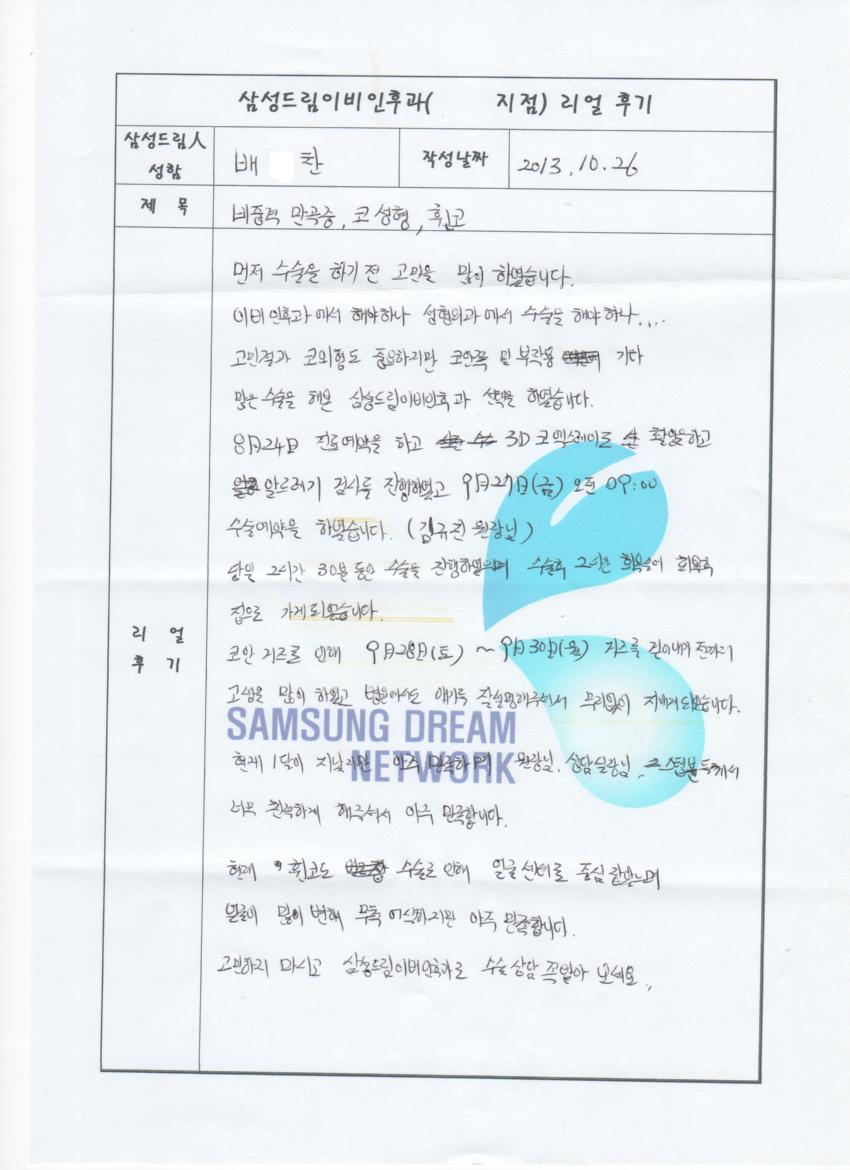 삼성드림이비인후과( 지점) 리얼 후기
삼성드림人
성함
배 찬
작성날짜
2013. 10. 26
제 목
비중격 만곡증, 코성형, 휜코
리 얼
후 기
먼저 수술을 하기전 고민을 많이 하였습니다.
이비인후과에서 해야하나 성형외과에서 수술을 해야하나....
고민결과 코외형도 중요하지만 코안쪽 및 부작용 기타
많은 수술을 해온 삼성드림이비인후과 선택을 하였습니다.
8月24日 진료예약을 하고 3D 코엑스레이로 촬영을하고
알르레기 검사를 진행하였고 9月27日(금) 오전 09:00
수술예약을 하였습니다. (김규진 원장님)
당일 2시간 30분동안 수술을 진행하였으며 수술후 2시간 회복후
집으로 가게되었습니다.
코안 거즈로 인해 9月28日(토) ~ 9月30日(월) 거즈를 전까지
고생을 많이 하였고 병원에서도 얘기를 잘설명해주셔서 무리없이 지내게되었습니다.
SAMSUNG DREAM
NETWORK
현재 1달이 지났지만 아주 만족하며 원장님, 상담실장님, 스텝분들께서
너무 친절하게 해주셔서 아주 만족합니다.
현재 휜코도 수술로 인해 얼굴센터로 중심
얼굴이 많이 변해 무척 어색하지만 아주 만족합니다.
고민하지 마시고 삼성드림이비인후과로 수술상담 꼭받아 보세요.